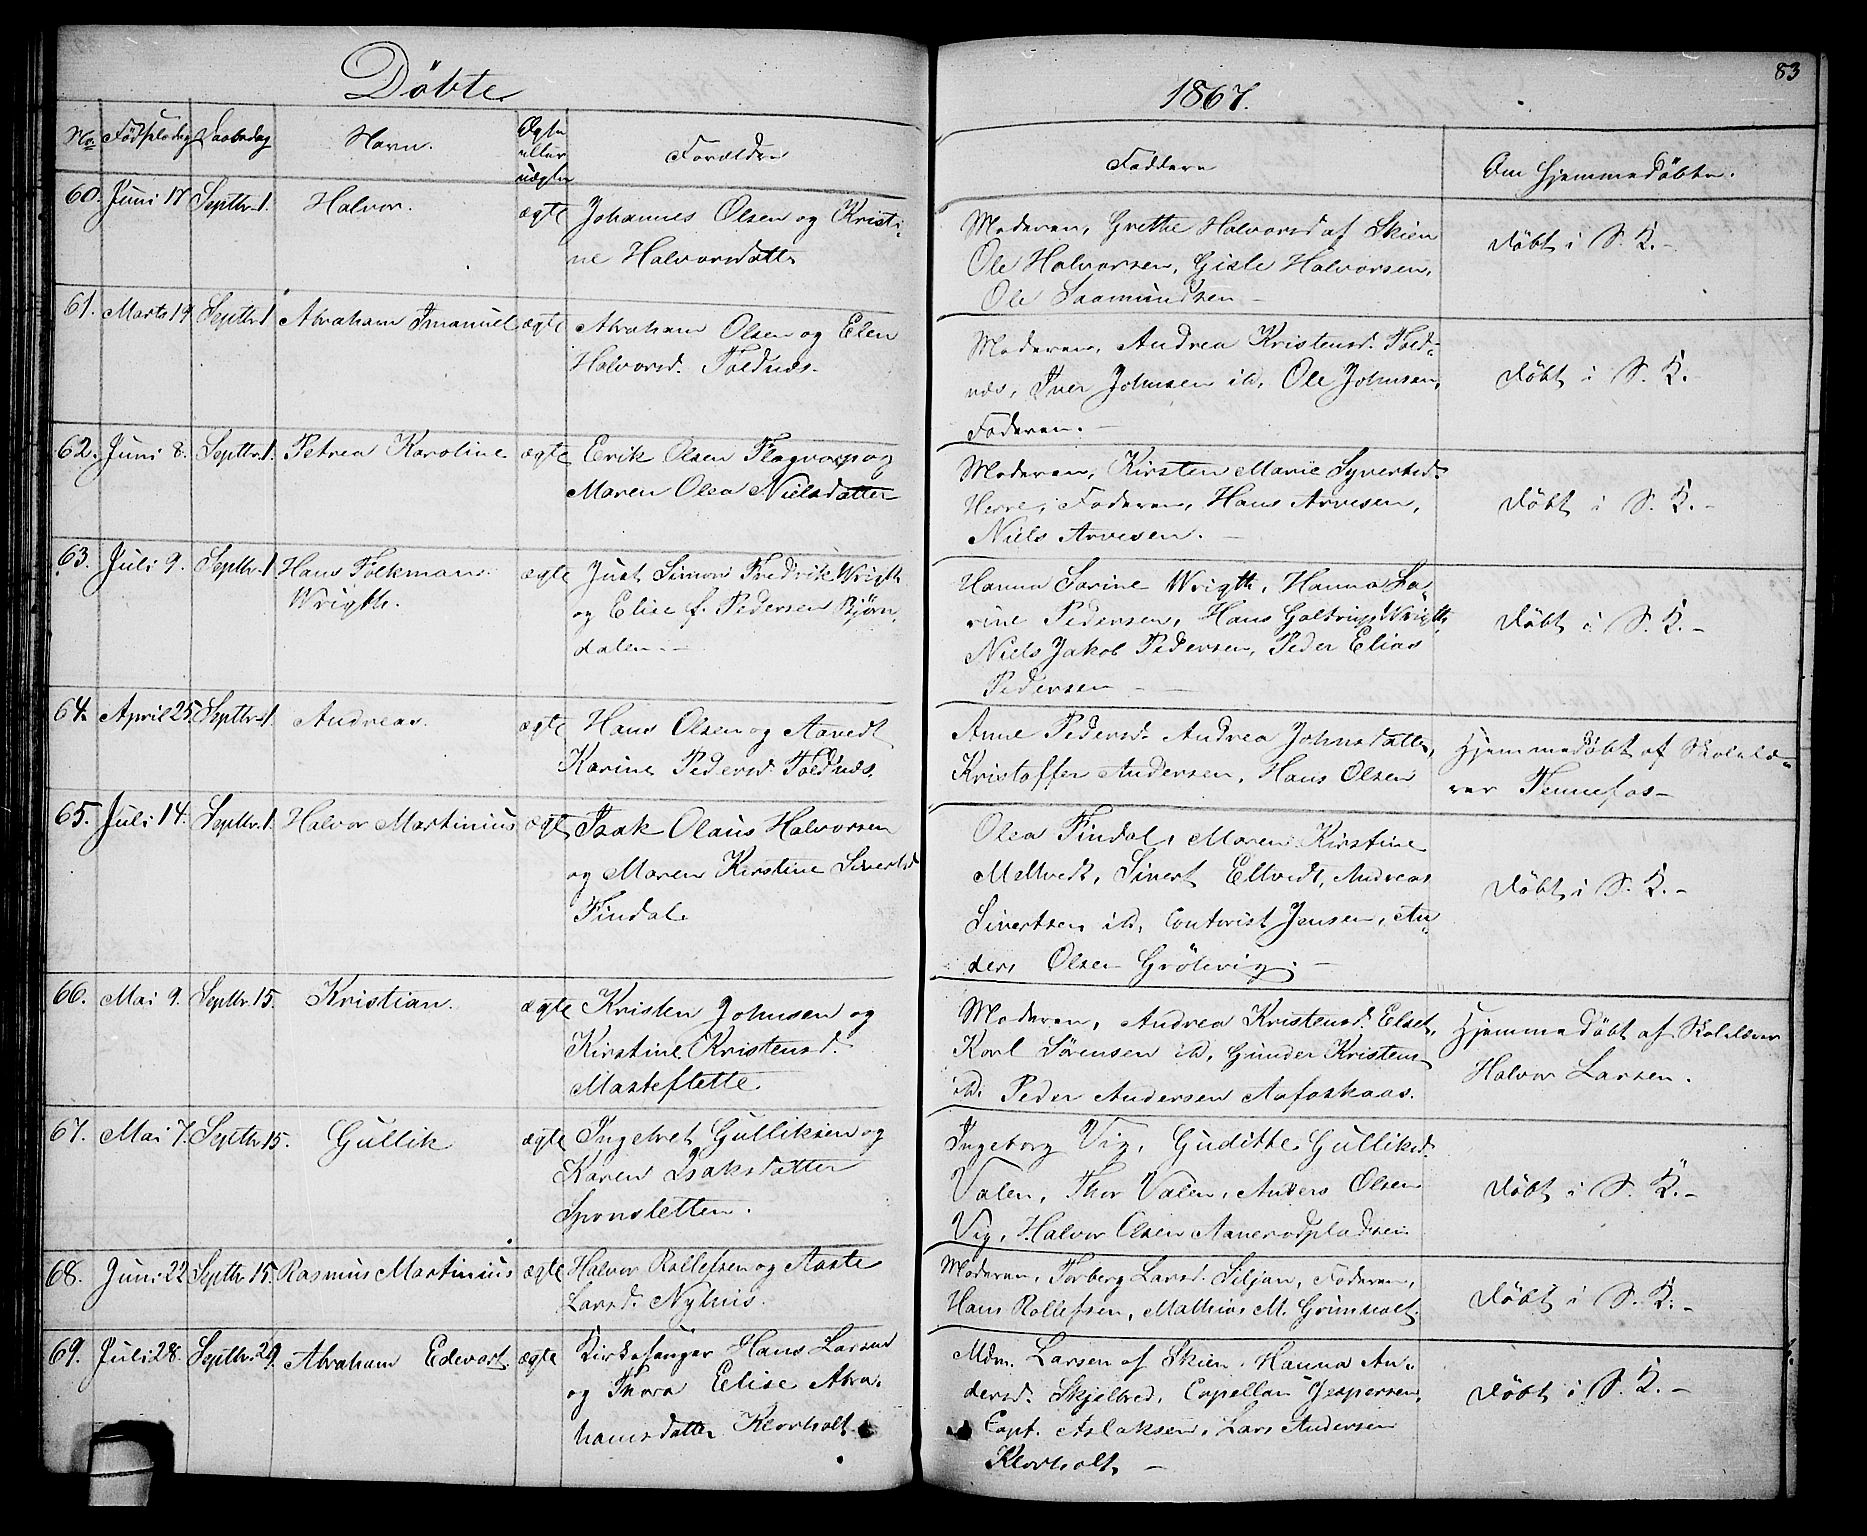 Döbte
1867.
83
No Födselsdag Daabsdag Navn. Ægte eller uægte Forældre Faddere Om Hjemmedöbte.
60. Juni 17 Septbr. 1. Halvor. ægte Johannes Olsen og Kristi-
ne Halvorsdatter
Moderen, Grethe Halvorsd af Skien
Ole Halvorsen, Gisle Halvorsen,
Ole Saamundsen
Döbt i S. K.
61. Marts 19 Septbr. 1 Abraham Imanuel ægte Abraham Olsen og Elen
Halvorsd. Foldnæs.
Moderen, Andrea Kristensd. Fold-
næs, Iver Johnsen ib, Ole Johnsen,
Faderen.
Döbt i S. K.
62. Juni 8. Septbr. 1. Petrea Karoline ægte Erik Olsen Flogvarp og
Maren Olea Nielsdatter
Moderen, Kirsten Marie Syvertsd.
Herre, Faderen, Hans Arvesen,
Niels Arvesen.
Döbt i S. K.
63. Juli 9. Septbr. 1 Hans Folkman
Wrigth.
ægte Just Simon Fredrik Wrigth
og Elise f. Pedersen Björn-
dalen.
Hanna Sarine Wrigth, Hanna Sa-
rine Pedersen, Hans Galtrup Wrigth,
Niels Jakob Pedersen, Peder Elias
Pedersen
Döbt i S. K.
64. April 25. Septbr. 1. Andreas. ægte Hans Olsen og Aavedt
Karine Pedersd. Foldnæs.
Anne Pedersd. Andrea Johnsdatter,
Kristoffer Andersen, Hans Olsen
Hjemmedöbt af Skolelæ-
rer Tennefos
65. Juli 14. Septbr. 1. Halvor Martinius ægte Isak Olaus Halvorsen
og Maren Kirstine Sivertsd
Findal.
Olea Findal, Maren Kirstine
Meltvedt, Sivert Eltvedt, Andreas
Sivertsen ib, Contorist Jensen, An-
ders Olsen Grötevig.
Döbt i S. K.
66. Mai 9. Septbr. 15. Kristian. ægte Kristen Johnsen og
Kirstine Kristensd.
Masteflette.
Moderen, Andrea Kristensd. Elset,
Karl Sörensen ib, Gunder Kristens
ib. Peder Andersen Aafoskaas.
Hjemmedöbt af Skolelærer
Halvor Larsen.
67. Mai 7. Septbr. 15. Gullik ægte Ingebret Gulliksen og
Karen Isaksdatter
Sponsletten.
Ingeborg Vig, Guditthe Gulliksd.
Valen, Thor Valen, Anders Olsen
Vig, Halvor Olsen Aanerödpladsen.
Döbt i S. K.
68. Juni 22 Septbr. 15. Rasmus Martinius ægte Halvor Rollefsen og Aaste
Larsd. Nyhuis.
Moderen, Torberg Larsd. Siljan, Faderen,
Hans Rollefsen, Mathias M. Grimholt.
Döbt i S. K.
69. Juli 28. Septbr. 29. Abraham Edevart. ægte Kirkesanger Hans Larsen
og Thora Elise Abra-
hamsdatter Klovholt.
Mdm. Larsen af Skien, Hanna An-
dersd. Skjelbred, Capellan Jespersen,
Capt. Aslaksen, Lars Andersen
Klovholt
Döbt i S. K.